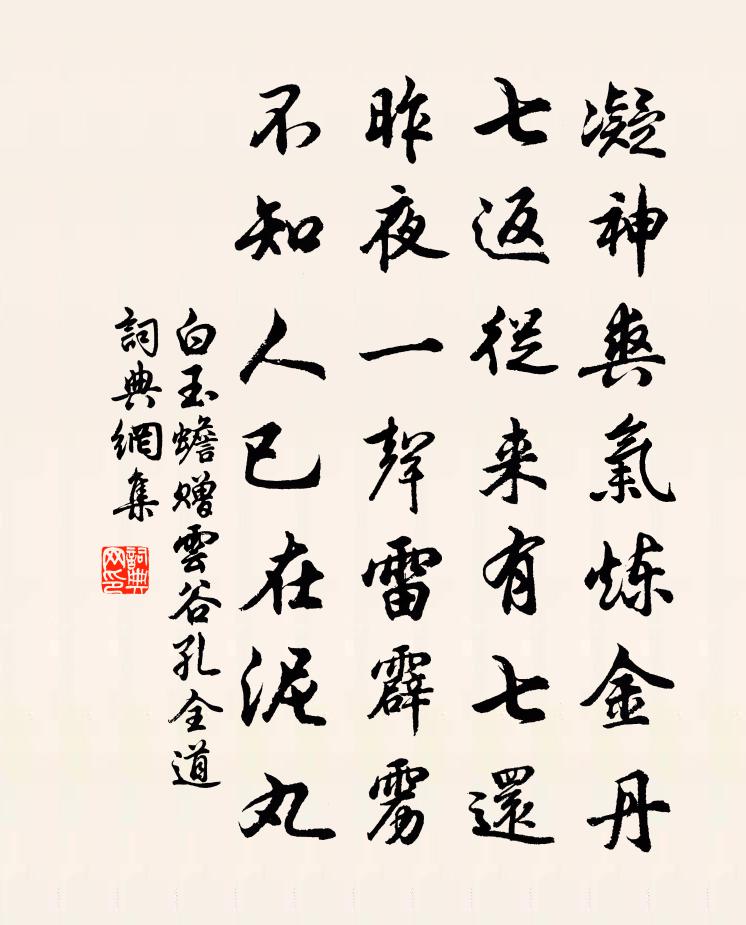 凝神爽氣炼金丹
七返從来有七還
昨夜一聲雷霹雳
不知人已在泥丸
白玉蟾赠雲谷孔全道
詞典網集
詞典网印